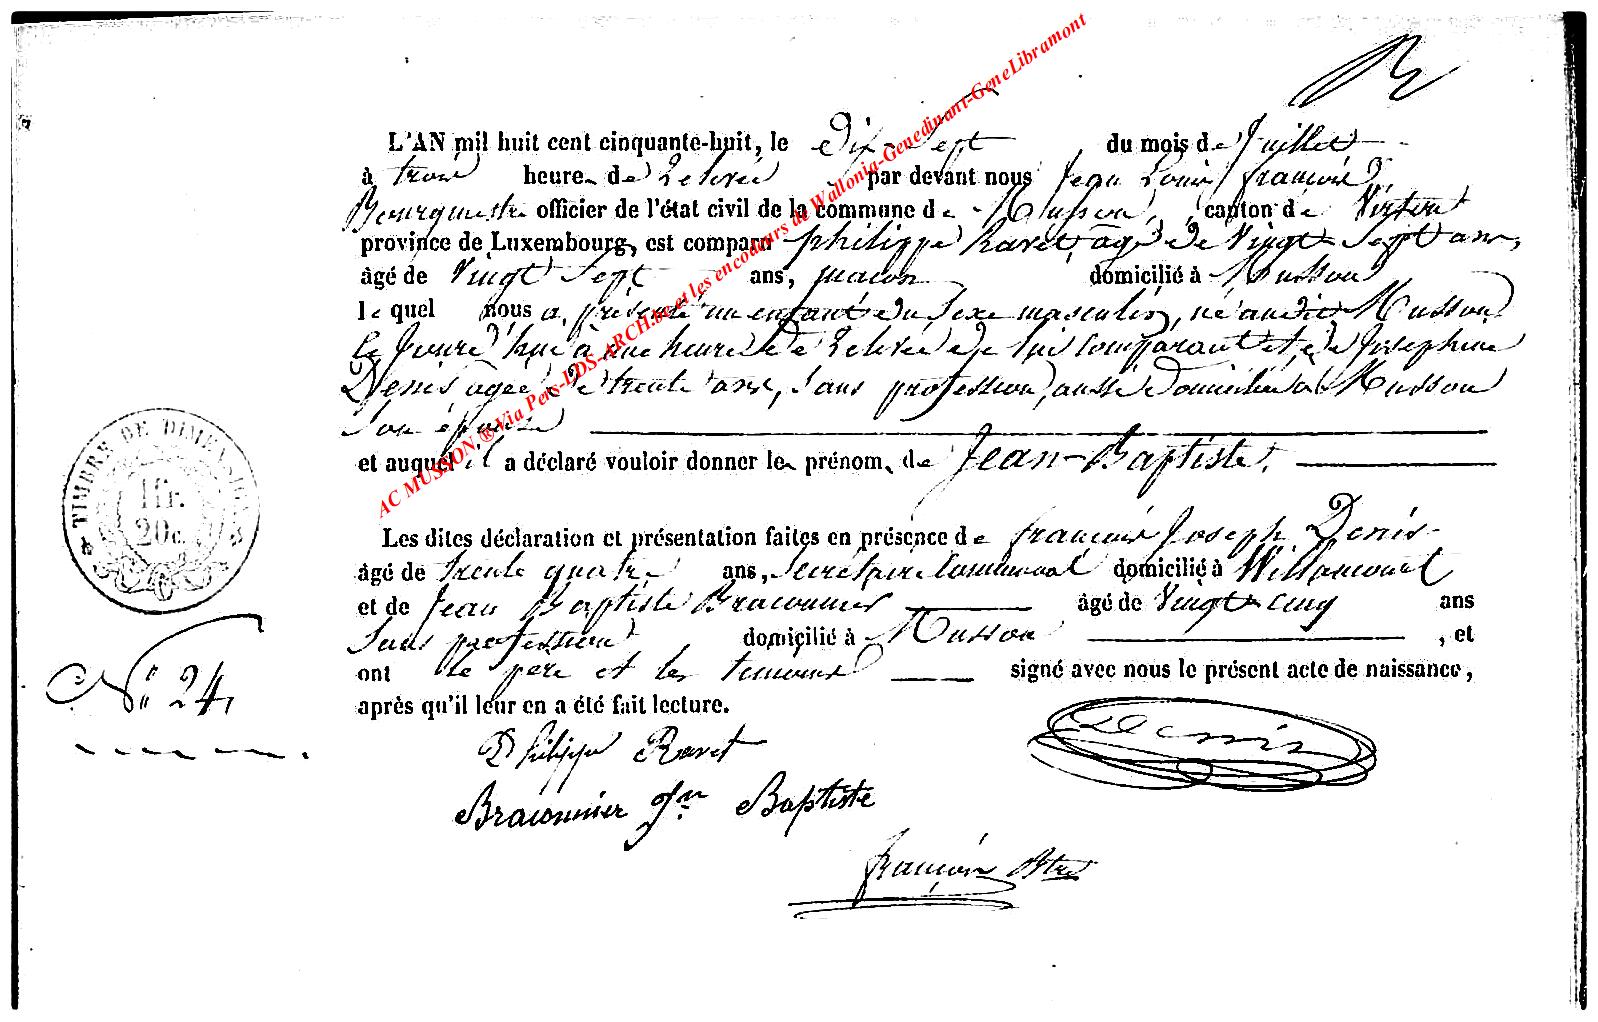 L'AN mil huit cent cinquante-huit, le Dix-Sept du mois de Juillet
à trois heures de relevée par devant nous Jean Louis François
Bourgmestre officier de l'état civil de la commune de Musson, canton de Virton
province de Luxembourg, est comparu philippe Ravet âgé de Vingt Sept ans,
âgé de Vingt Sept ans, maçon domicilié à Musson
le quel nous a présenté un enfant du Sexe masculin, né audit Musson
Ce Jourd'hui à une heure de relevée de lui Comparant et de Josephine
Denis, âgée de trente ans, Sans profession, aussi Domiciliée à Musson
Son épouse
et auquel il a déclaré vouloir donner le prénom de Jean-Baptiste.
Les dites déclaration et présentation faites en présence de François Joseph Denis
âgé de trente quatre ans, Secrétaire Communal domicilié à Willancourt
et de Jean Baptiste Braconnier âgé de Vingt cinq ans
Sans profession domicilié à Musson , et
ont le père et les témoins signé avec nous le présent acte de naissance,
après qu'il leur en a été fait lecture.
Philippe Ravet
Denis
Braconnier Jn Baptiste
François Btre
TIMBRE DE DIMENSION
1fr.
20c.
N° 24
AC MUSSON ® Via Pers-LDS-ARCH.be et les encodeurs de Wallonia-Genedinant-GeneLibramont